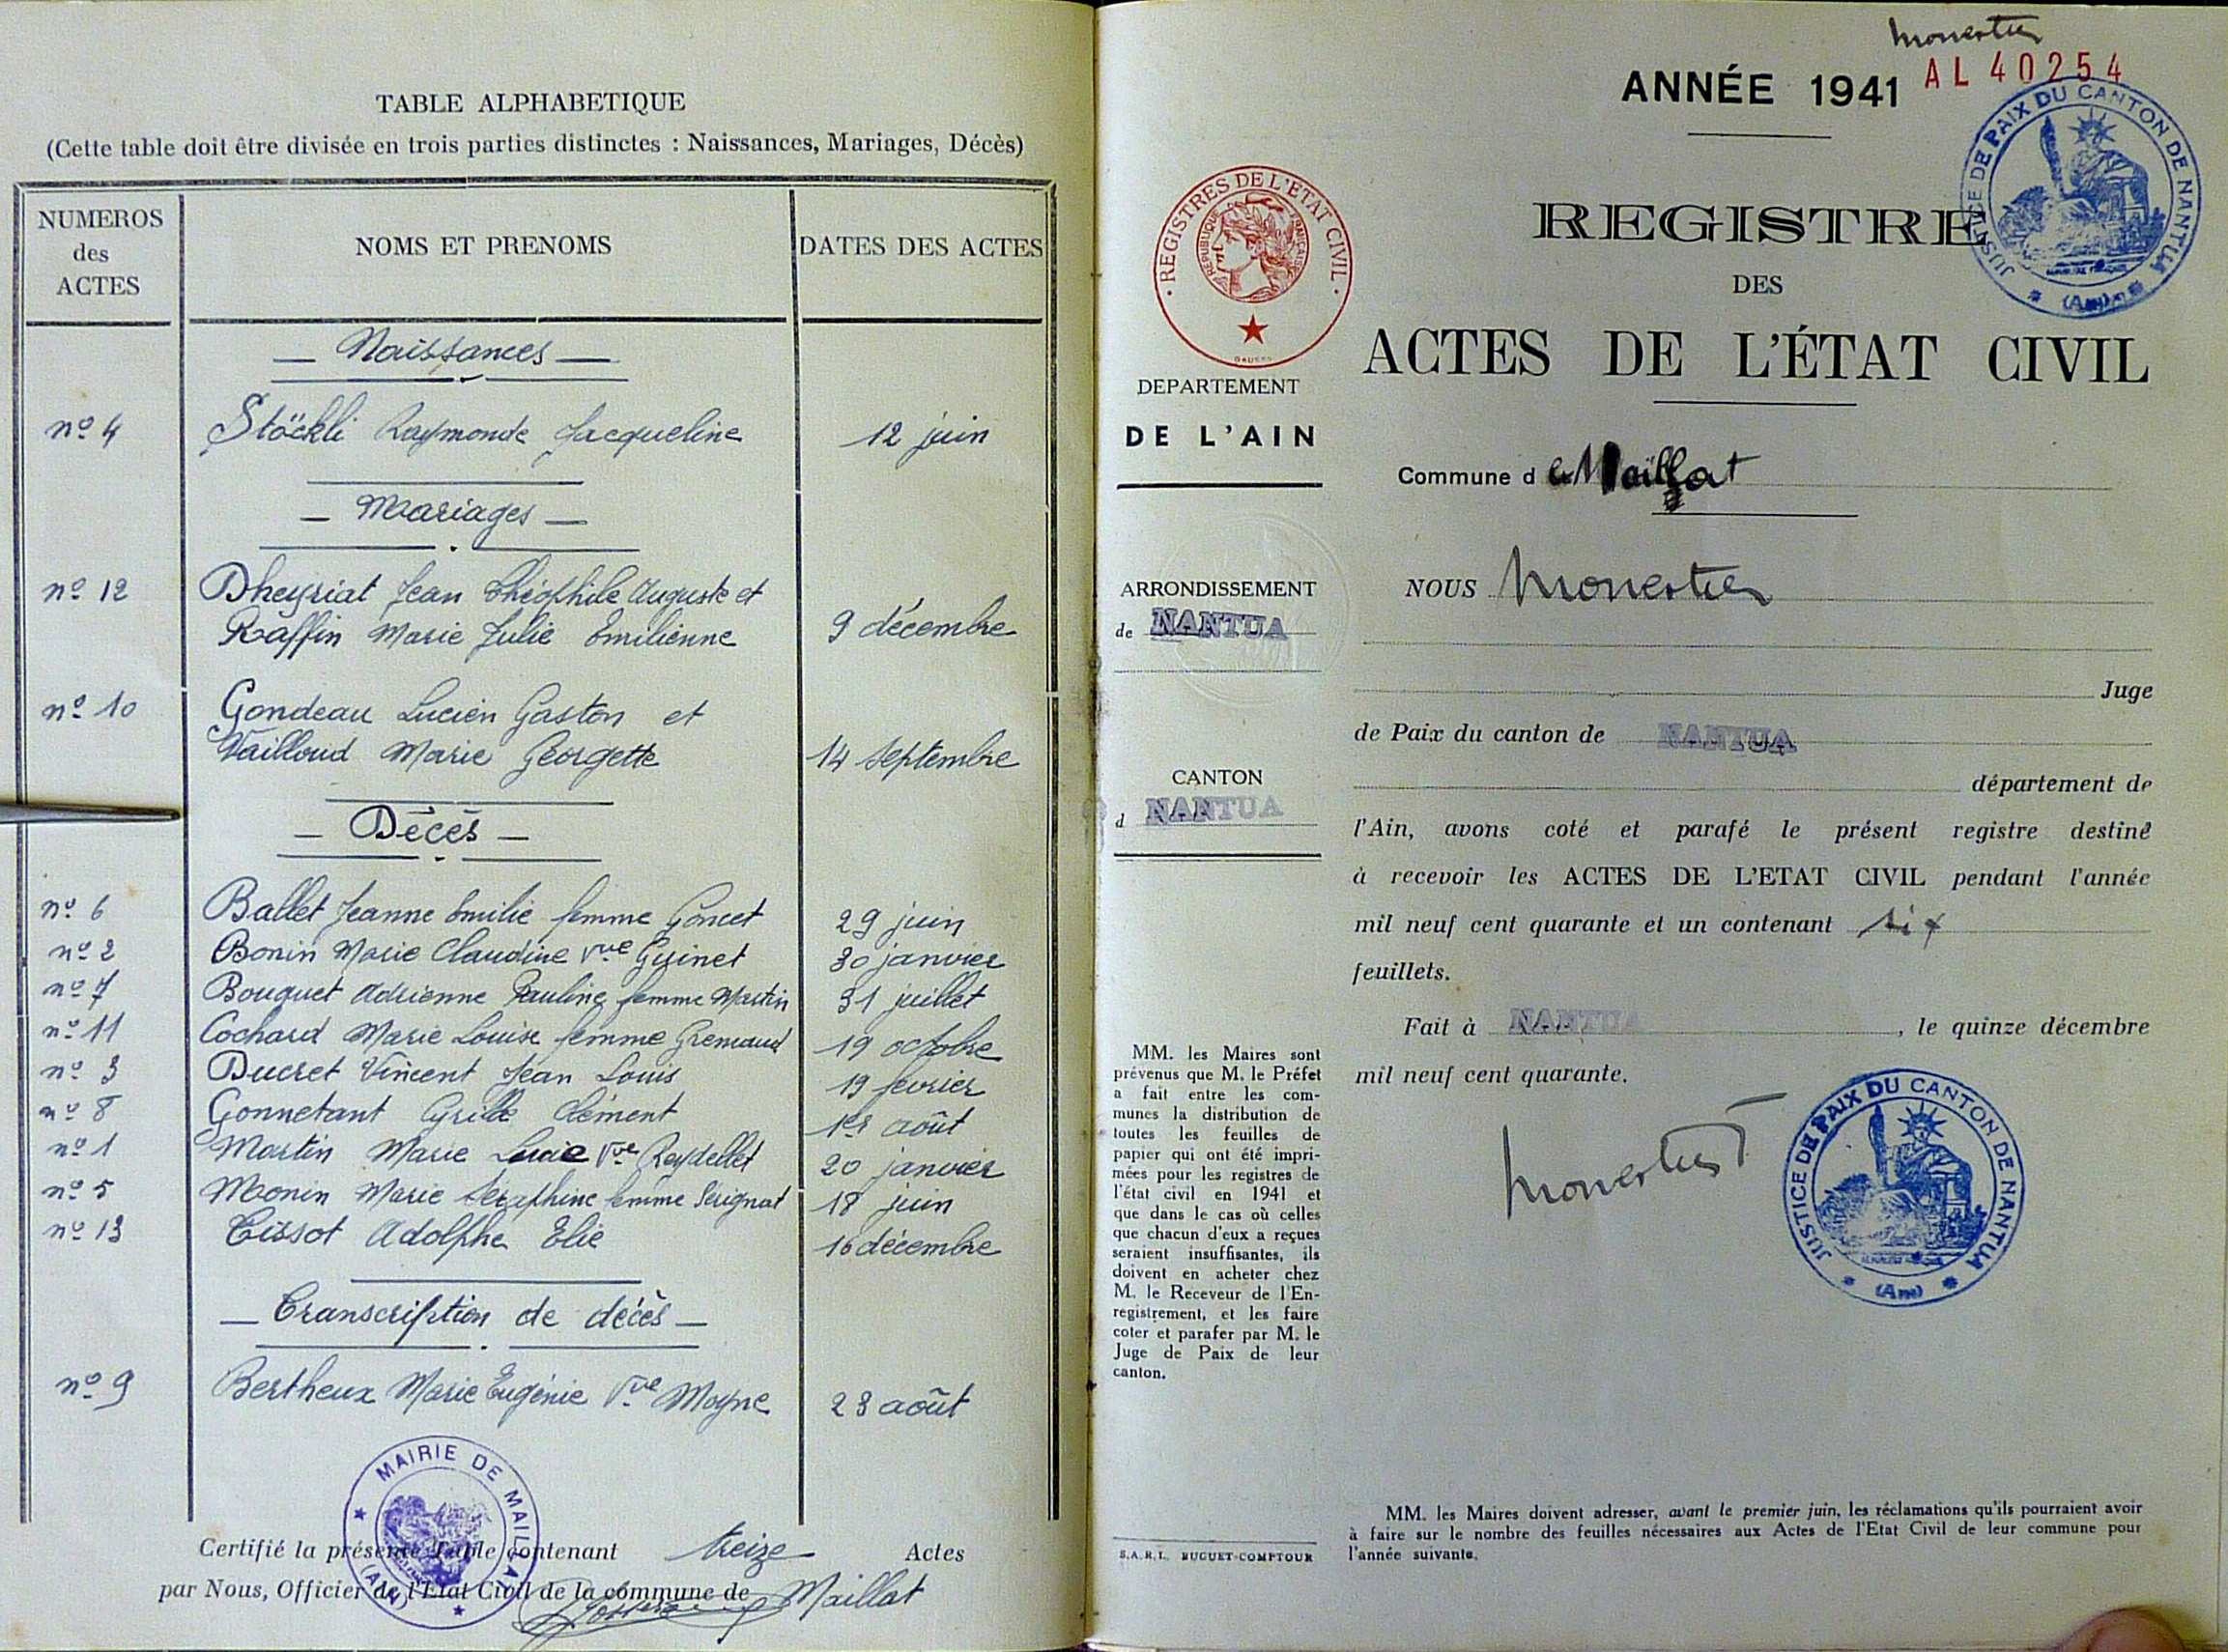 TABLE ALPHABETIQUE
(Cette table doit être divisée en trois parties distinctes : Naissances, Mariages, Décès)
NUMEROS des ACTES
NOMS ET PRENOMS
DATES DES ACTES
— Naissances —
nº 4 Stöckli Raymonde Jacqueline 12 juin
— Mariages —
nº 12 Dheyriat Jean Théophile Auguste et
Raffin Marie Julie Emilienne 9 décembre
nº 10 Gondeau Lucien Gaston et
Vailloud Marie Georgette 14 septembre
— Décès —
nº 6 Ballet Jeanne Emilie femme Goncet 29 juin
nº 2 Bonin Marie Claudine Vve Guinet 30 janvier
nº 7 Bouquet Adrienne Pauline femme Martin 31 juillet
nº 11 Cochard Marie Louise femme Gremaud 19 octobre
nº 3 Ducret Vincent Jean Louis 19 février
nº 8 Gonnetant Clément 1er août
nº 1 Martin Marie Vve Reydellet 20 janvier
nº 5 Monin Marie Séraphine femme Sérignat 18 juin
nº 13 Tissot Adolphe Elie 16 décembre
— Transcription de décès —
nº 9 Bertheux Marie Eugénie Vve Moyne 23 août
MAIRIE DE MAILLAT
(AIN)
Certifié la présente Table contenant treize Actes
par Nous, Officier de l'Etat Civil de la commune de Maillat
Monestier
ANNÉE 1941 AL 40254
JUSTICE DE PAIX DU CANTON DE NANTUA
(Ain)
REGISTRES DE L'ETAT CIVIL
REPUBLIQUE FRANÇAISE
REGISTRE
DES
ACTES DE L'ÉTAT CIVIL
DEPARTEMENT
DE L'AIN
Commune de Maillat
ARRONDISSEMENT
de NANTUA
CANTON
d NANTUA
NOUS Monestier
Juge
de Paix du canton de NANTUA
département de
l'Ain, avons coté et parafé le présent registre destiné
à recevoir les ACTES DE L'ETAT CIVIL pendant l'année
mil neuf cent quarante et un contenant six
feuillets.
Fait à NANTUA, le quinze décembre
mil neuf cent quarante.
Monestier
JUSTICE DE PAIX DU CANTON DE NANTUA
(Ain)
MM. les Maires sont
prévenus que M. le Préfet
a fait entre les com-
munes la distribution de
toutes les feuilles de
papier qui ont été impri-
mées pour les registres de
l'état civil en 1941 et
que dans le cas où celles
que chacun d'eux a reçues
seraient insuffisantes, ils
doivent en acheter chez
M. le Receveur de l'En-
registrement, et les faire
coter et parafer par M. le
Juge de Paix de leur
canton.
S.A.R.L. BUGUET-COMPTOUR
MM. les Maires doivent adresser, avant le premier juin, les réclamations qu'ils pourraient avoir
à faire sur le nombre des feuilles nécessaires aux Actes de l'Etat Civil de leur commune pour
l'année suivante.